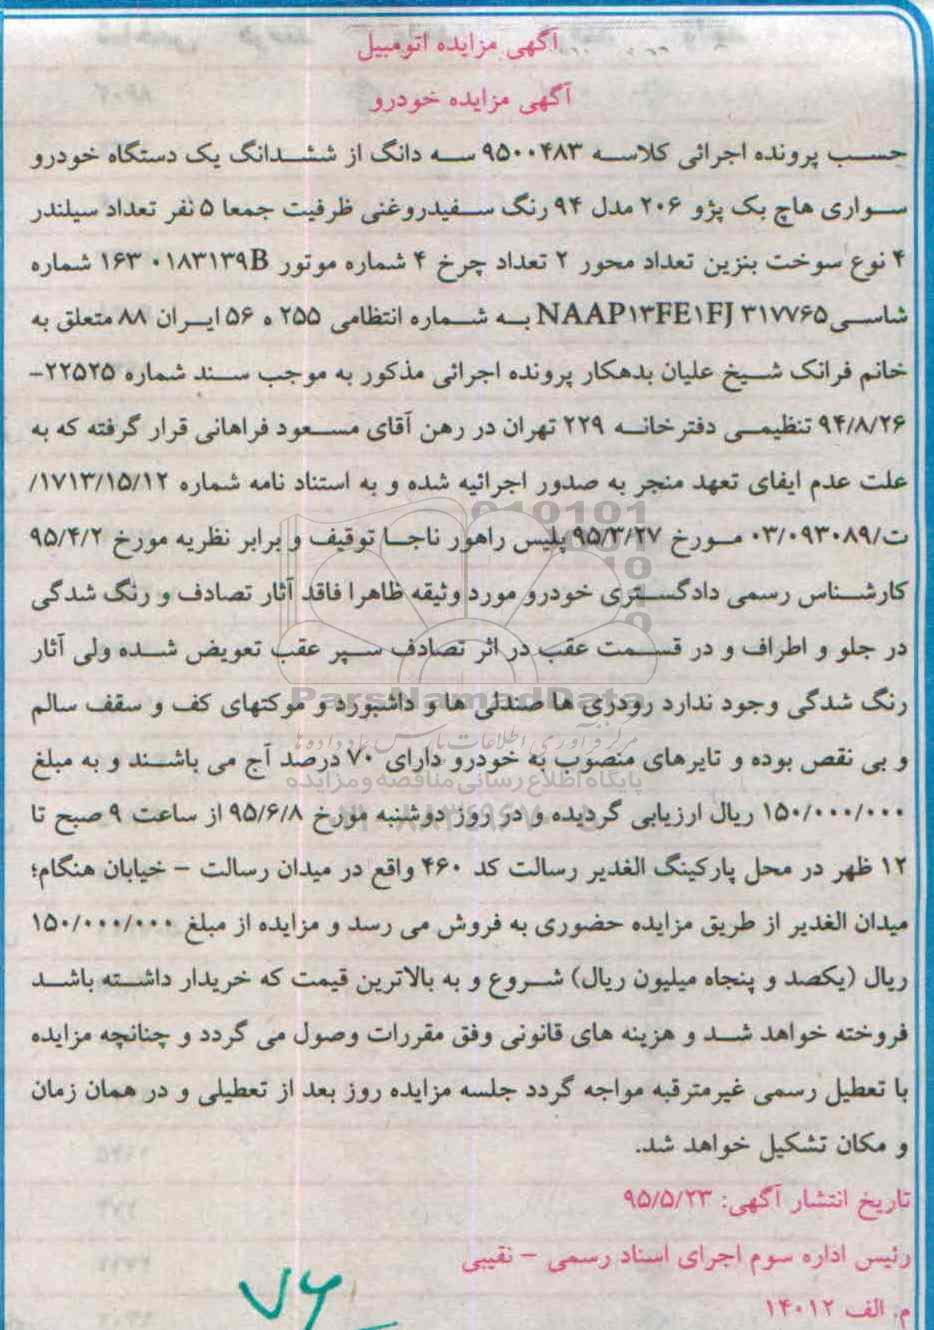 آگهی مزایده اتومبیل
آگهی مزایده خودرو
حسب پرونده اجرائی کلاسه ۹۵۰۰۴۸۳ سه دانگ از ششدانگ یک دستگاه خودرو
سواری هاچ بک پژو ۲۰۶ مدل ۹۴ رنگ سفیدروغنی ظرفیت جمعا ۵ نفر تعداد سیلندر
۴ نوع سوخت بنزین تعداد محور ۲ تعداد چرخ ۴ شماره موتور ۱۶۳ ۰۱۸۳۱۳۹B شماره
شاسی NAAP۱۳FE۱FJ ۳۱۷۷۶۵ به شماره انتظامی ۲۵۵ ه ۵۶ ایران ۸۸ متعلق به
خانم فرانک شیخ علیان بدهکار پرونده اجرائی مذکور به موجب سند شماره ۲۲۵۲۵-
۹۴/۸/۲۶ تنظیمی دفترخانه ۲۲۹ تهران در رهن آقای مسعود فراهانی قرار گرفته که به
علت عدم ایفای تعهد منجر به صدور اجرائیه شده و به استناد نامه شماره ۱۷۱۳/۱۵/۱۲/
ت/۰۳/۰۹۳۰۸۹ مورخ ۹۵/۳/۲۷ پلیس راهور ناجا توقیف و برابر نظریه مورخ ۹۵/۴/۲
کارشناس رسمی دادگستری خودرو مورد وثیقه ظاهرا فاقد آثار تصادف و رنگ شدگی
در جلو و اطراف و در قسمت عقب در اثر تصادف سپر عقب تعویض شده ولی آثار
رنگ شدگی وجود ندارد رودری ها صندلی ها و داشبورد و موکتهای کف و سقف سالم
و بی نقص بوده و تایرهای منصوب به خودرو دارای ۷۰ درصد آج می باشند و به مبلغ
۱۵۰/۰۰۰/۰۰۰ ریال ارزیابی گردیده و در روز دوشنبه مورخ ۹۵/۶/۸ از ساعت ۹ صبح تا
۱۲ ظهر در محل پارکینگ الغدیر رسالت کد ۴۶۰ واقع در میدان رسالت - خیابان هنگام؛
میدان الغدیر از طریق مزایده حضوری به فروش می رسد و مزایده از مبلغ ۱۵۰/۰۰۰/۰۰۰
ریال (یکصد و پنجاه میلیون ریال) شروع و به بالاترین قیمت که خریدار داشته باشد
فروخته خواهد شد و هزینه های قانونی وفق مقررات وصول می گردد و چنانچه مزایده
با تعطیل رسمی غیرمترقبه مواجه گردد جلسه مزایده روز بعد از تعطیلی و در همان زمان
و مکان تشکیل خواهد شد.
تاریخ انتشار آگهی: ۹۵/۵/۲۳
رئیس اداره سوم اجرای اسناد رسمی - نقیبی
م. الف ۱۴۰۱۲
۷۶
ParsNamadData
پایگاه اطلاع رسانی مناقصه و مزایده